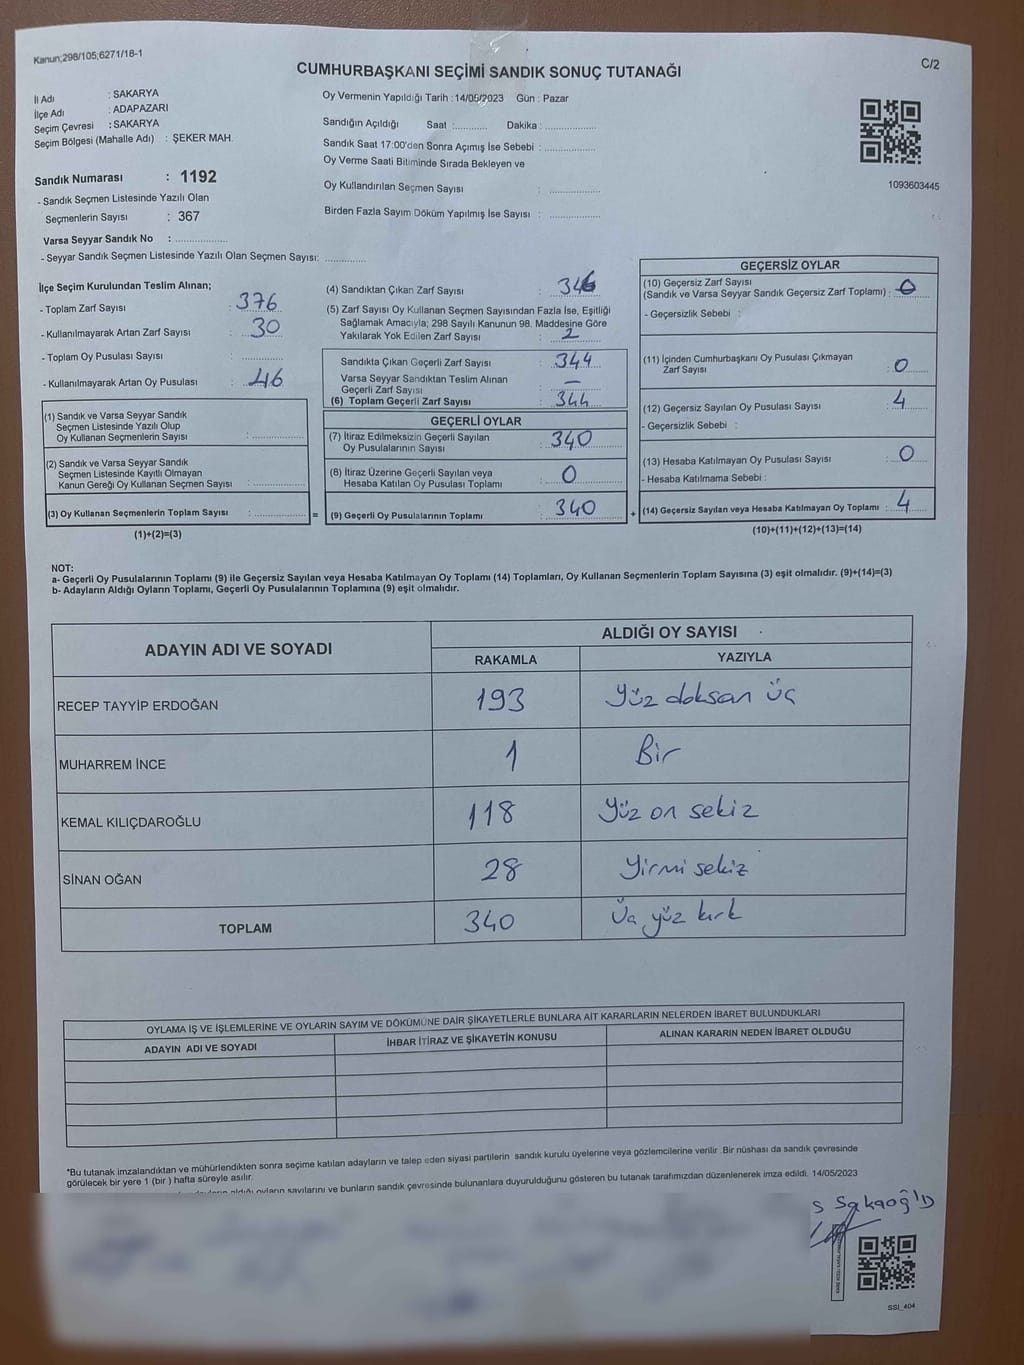 Kanun;298/105;6271/18-1
C/2
CUMHURBAŞKANI SEÇİMİ SANDIK SONUÇ TUTANAĞI
İl Adı : SAKARYA
İlçe Adı : ADAPAZARI
Seçim Çevresi : SAKARYA
Seçim Bölgesi (Mahalle Adı) : ŞEKER MAH.
Sandık Numarası : 1192
- Sandık Seçmen Listesinde Yazılı Olan
Seçmenlerin Sayısı : 367
Varsa Seyyar Sandık No : ..................
- Seyyar Sandık Seçmen Listesinde Yazılı Olan Seçmen Sayısı: ..............
Oy Vermenin Yapıldığı Tarih : 14/05/2023 Gün : Pazar
Sandığın Açıldığı Saat :............ Dakika : ..................
Sandık Saat 17:00'den Sonra Açımış İse Sebebi : ..................
Oy Verme Saati Bitiminde Sırada Bekleyen ve
Oy Kullandırılan Seçmen Sayısı : ..................
Birden Fazla Sayım Döküm Yapılmış İse Sayısı : ..................
1093603445
İlçe Seçim Kurulundan Teslim Alınan;
- Toplam Zarf Sayısı : 376
- Kullanılmayarak Artan Zarf Sayısı : 30
- Toplam Oy Pusulası Sayısı : ..............
- Kullanılmayarak Artan Oy Pusulası : 46
(1) Sandık ve Varsa Seyyar Sandık
Seçmen Listesinde Yazılı Olup
Oy Kullanan Seçmenlerin Sayısı : ..............
(2) Sandık ve Varsa Seyyar Sandık
Seçmen Listesinde Kayıtlı Olmayan
Kanun Gereği Oy Kullanan Seçmen Sayısı : ..............
(3) Oy Kullanan Seçmenlerin Toplam Sayısı : .............. =
(1)+(2)=(3)
(4) Sandıktan Çıkan Zarf Sayısı : 346
(5) Zarf Sayısı Oy Kullanan Seçmen Sayısından Fazla İse, Eşitliği
Sağlamak Amacıyla; 298 Sayılı Kanunun 98. Maddesine Göre
Yakılarak Yok Edilen Zarf Sayısı : 2
Sandıkta Çıkan Geçerli Zarf Sayısı : 344
Varsa Seyyar Sandıktan Teslim Alınan
Geçerli Zarf Sayısı : —
(6) Toplam Geçerli Zarf Sayısı : 344
GEÇERLİ OYLAR
(7) İtiraz Edilmeksizin Geçerli Sayılan
Oy Pusulalarının Sayısı : 340
(8) İtiraz Üzerine Geçerli Sayılan veya
Hesaba Katılan Oy Pusulası Toplamı : 0
(9) Geçerli Oy Pusulalarının Toplamı : 340 +
GEÇERSİZ OYLAR
(10) Geçersiz Zarf Sayısı
(Sandık ve Varsa Seyyar Sandık Geçersiz Zarf Toplamı) : 0
- Geçersizlik Sebebi :
(11) İçinden Cumhurbaşkanı Oy Pusulası Çıkmayan
Zarf Sayısı : 0
(12) Geçersiz Sayılan Oy Pusulası Sayısı : 4
- Geçersizlik Sebebi :
(13) Hesaba Katılmayan Oy Pusulası Sayısı : 0
- Hesaba Katılmama Sebebi :
(14) Geçersiz Sayılan veya Hesaba Katılmayan Oy Toplamı : 4
(10)+(11)+(12)+(13)=(14)
NOT:
a- Geçerli Oy Pusulalarının Toplamı (9) ile Geçersiz Sayılan veya Hesaba Katılmayan Oy Toplamı (14) Toplamları, Oy Kullanan Seçmenlerin Toplam Sayısına (3) eşit olmalıdır. (9)+(14)=(3)
b- Adayların Aldığı Oyların Toplamı, Geçerli Oy Pusulalarının Toplamına (9) eşit olmalıdır.
ADAYIN ADI VE SOYADI ALDIĞI OY SAYISI
RAKAMLA YAZIYLA
RECEP TAYYİP ERDOĞAN 193 Yüz doksan üç
MUHARREM İNCE 1 Bir
KEMAL KILIÇDAROĞLU 118 Yüz on sekiz
SİNAN OĞAN 28 Yirmi sekiz
TOPLAM 340 Üç yüz kırk
OYLAMA İŞ VE İŞLEMLERİNE VE OYLARIN SAYIM VE DÖKÜMÜNE DAİR ŞİKAYETLERLE BUNLARA AİT KARARLARIN NELERDEN İBARET BULUNDUKLARI
ADAYIN ADI VE SOYADI İHBAR İTİRAZ VE ŞİKAYETİN KONUSU ALINAN KARARIN NEDEN İBARET OLDUĞU
*Bu tutanak imzalandıktan ve mühürlendikten sonra seçime katılan adayların ve talep eden siyasi partilerin sandık kurulu üyelerine veya gözlemcilerine verilir .Bir nüshası da sandık çevresinde
görülecek bir yere 1 (bir ) hafta süreyle asılır.
aldığı oyların sayılarını ve bunların sandık çevresinde bulunanlara duyurulduğunu gösteren bu tutanak tarafımızdan düzenlenerek imza edildi. 14/05/2023
SSI_404